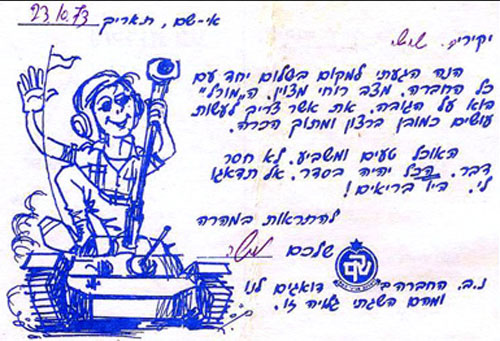 אי-שם, תאריך 23.10.73
יקירי,
הנה הגעתי למקום בשלום יחד עם
כל החברה. מצב רוחי מצוין. ה"מורל"
הוא על הגובה. את אשר צריך לעשות
עושים כמובן ברצון ומתוך הכרה.
האוכל טעים ומשביע. לא חסר
דבר. הכל יהיה בסדר. אל תדאגו
לי. היו בריאים!
להתראות במהרה
שלכם
שקם
נ.ב. החברה ב דואגים לנו
ומהם השגתי גלויה זו.